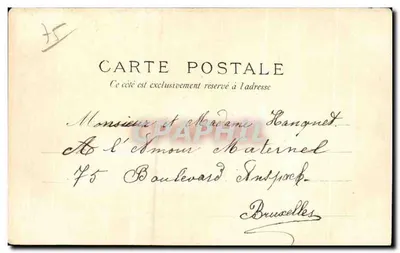 75
CARTE POSTALE
Ce côté est exclusivement réservé à l'adresse
Monsieur et Madame Hanquet
A l'Amour Maternel
75 Boulevard Anspach
Bruxelles